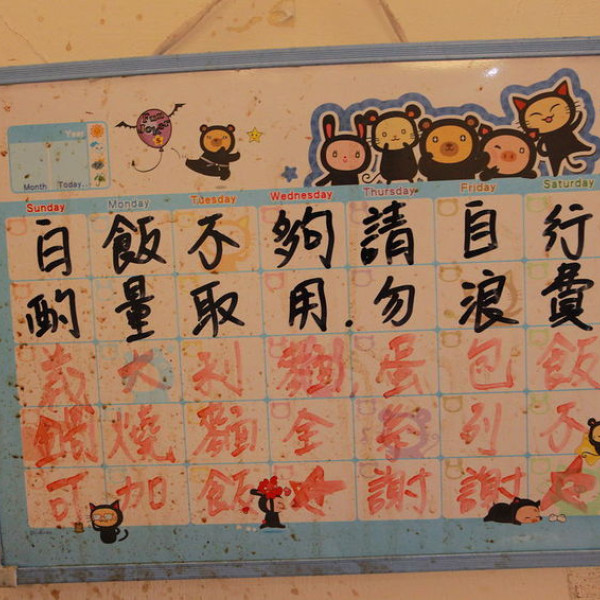 Fun Toyer
Year
Month Today
Sunday Monday Tuesday Wednesday Thursday Friday Saturday
白飯不夠請自行
酌量取用.勿浪費
義大利麵蛋包飯
鍋燒麵全系列不
可加飯★謝謝★